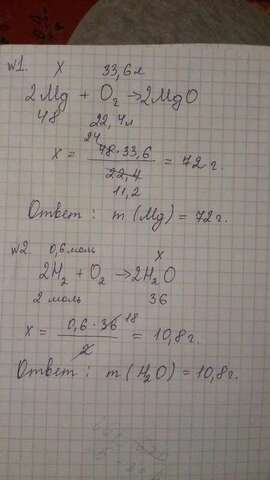 №1. x 33,6л
2Mg + O₂ → 2MgO
48 22,4л
24
x = 48·33,6 / 22,4 = 72 г.
11,2
Ответ: m (Mg) = 72 г.
№2. 0,6 моль x
2H₂ + O₂ → 2H₂O
2 моль 36
x = 0,6 · 36 18 / 2 = 10,8 г.
Ответ: m (H₂O) = 10,8 г.